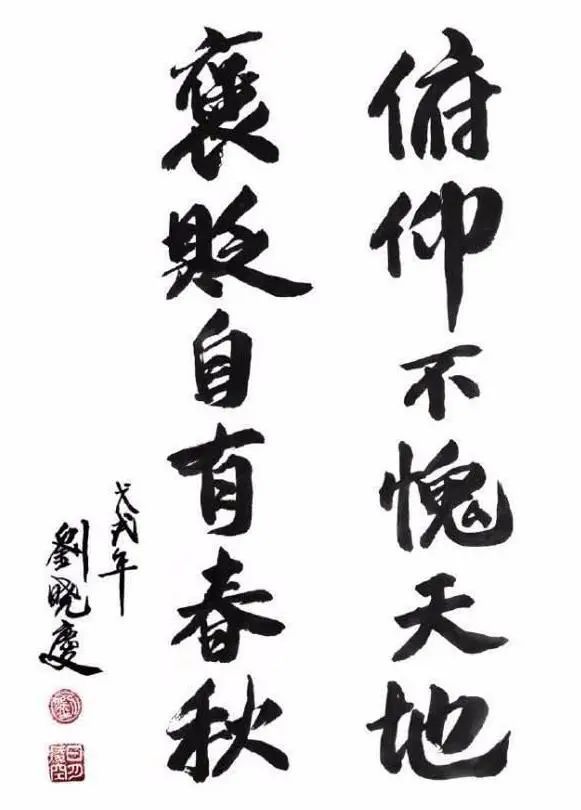 俯仰不愧天地
褒貶自有春秋
戊戌年
劉晓慶